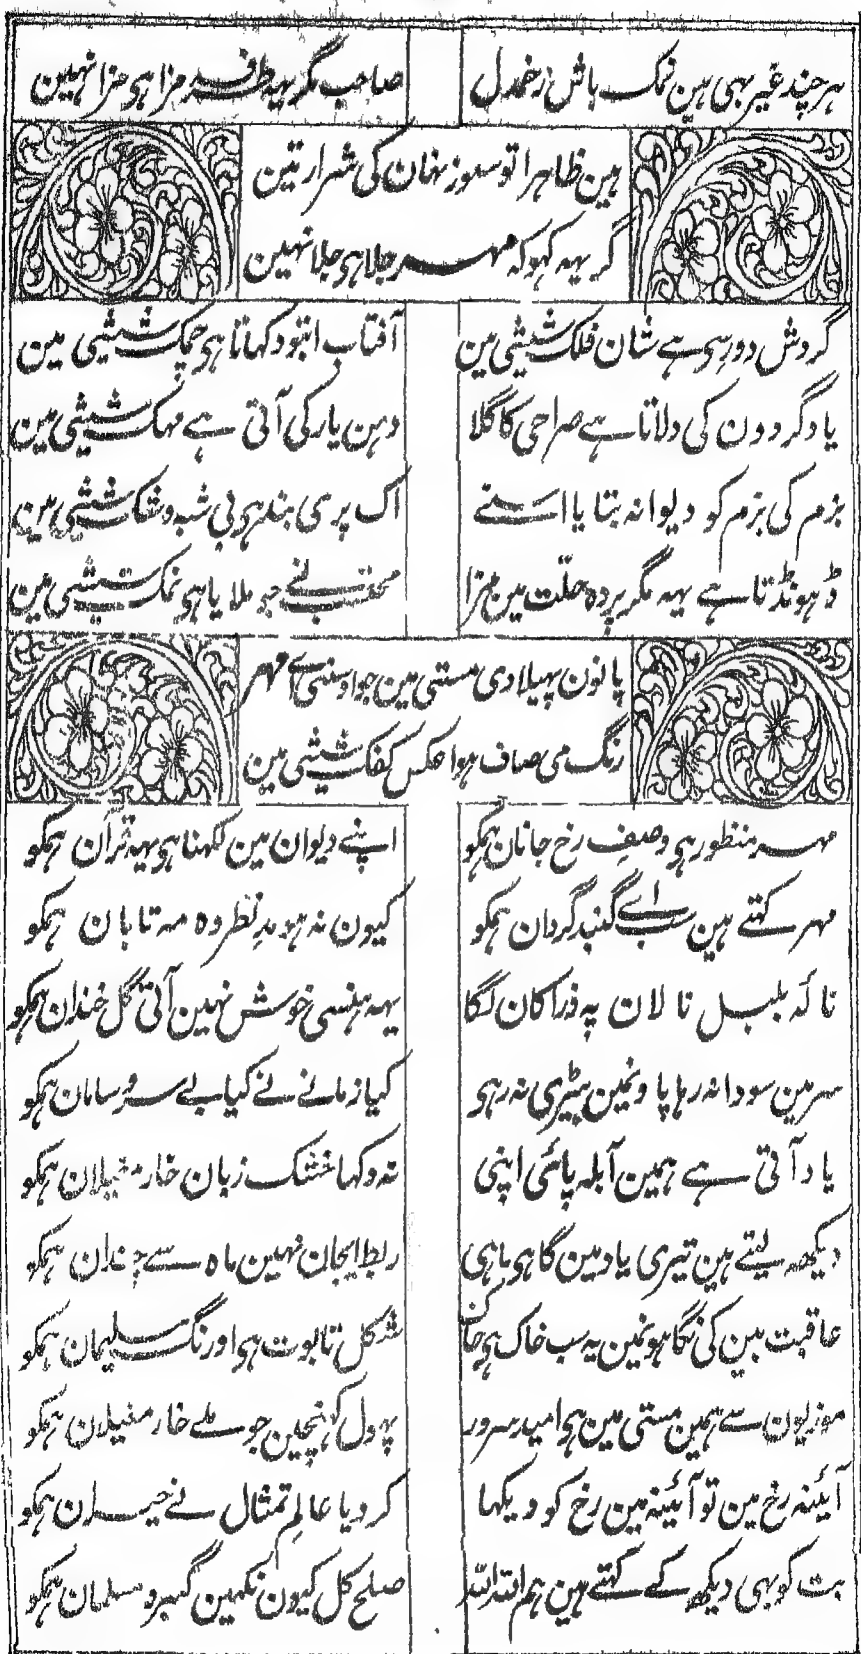 ہر چند غیر بہی ہین نمک پاش زخمدل
صاحب مگر یہہ طرفہ مزا ہی مزا نہین
ہین ظاہرا تو سوز نہان کی شرارتین
گر یہہ کہو کہ مہر جلا ہی جلا نہین
گردش دور سی ہے شان فلک شیشی مین
آفتاب اپنو دکہاتا ہی چمک شیشی مین
یاد گردون کی دلاتا ہے صراحی کا گلا
دہن یار کی آتی ہے مہک شیشی مین
بزم کی بزم کو دیوانہ بنایا اسنے
اک پری ہی بند ہوئی شبہ و شک شیشی مین
ڈہونڈتا ہے یہہ مگر پردہ حلّت مین مزا
محتسب نے جو ملایا ہی نمک شیشی مین
پانون پہیلا دی مستی مین جو اوسنی اے مہر
رنگ می صاف ہوا عکس کفک شیشی مین
مہر منظور ہی وصفِ رخ جانان ہمکو
اپنے دیوان مین لکہنا ہی یہہ قرآن ہمکو
مہر کہتے ہین سب اے گنبد گردان ہمکو
کیون نہ ہو مدِ نظر وہ مہ تابان ہمکو
نالہ بلبل نالان پہ ذرا کان لگا
یہہ ہنسی خوش نہین آتی گل خندان ہمکو
سر مین سودا نہ رہا پاونمین بیڑی نہ رہی
کیا زمانے نے کیا بے سر و سامان ہمکو
یاد آتی ہے ہمین آبلہ پائی اپنی
نہ دکہا خشک زبان خار مغیلان ہمکو
دیکہہ لیتے ہین تیری یاد مین گاہی ماہی
ربط ایجان نہین ماہ سے چندان ہمکو
عاقبت بین کی نگاہونمین یہ سب خاک ہی جان
شکل تابوت ہی اورنگ سلیمان ہمکو
موزیون سے ہمین مستی مین ہی امید سرور
پہول کہنچین جو ملے خار مغیلان ہمکو
آئینہ رخ مین تو آئینہ مین رخ کو دیکہا
کر دیا عالمِ تمثال نے حیران ہمکو
بت کو بہی دیکہہ کے کہتے ہین ہم اللہ اللہ
صلح کل کیون نکہین گبر و مسلمان ہمکو